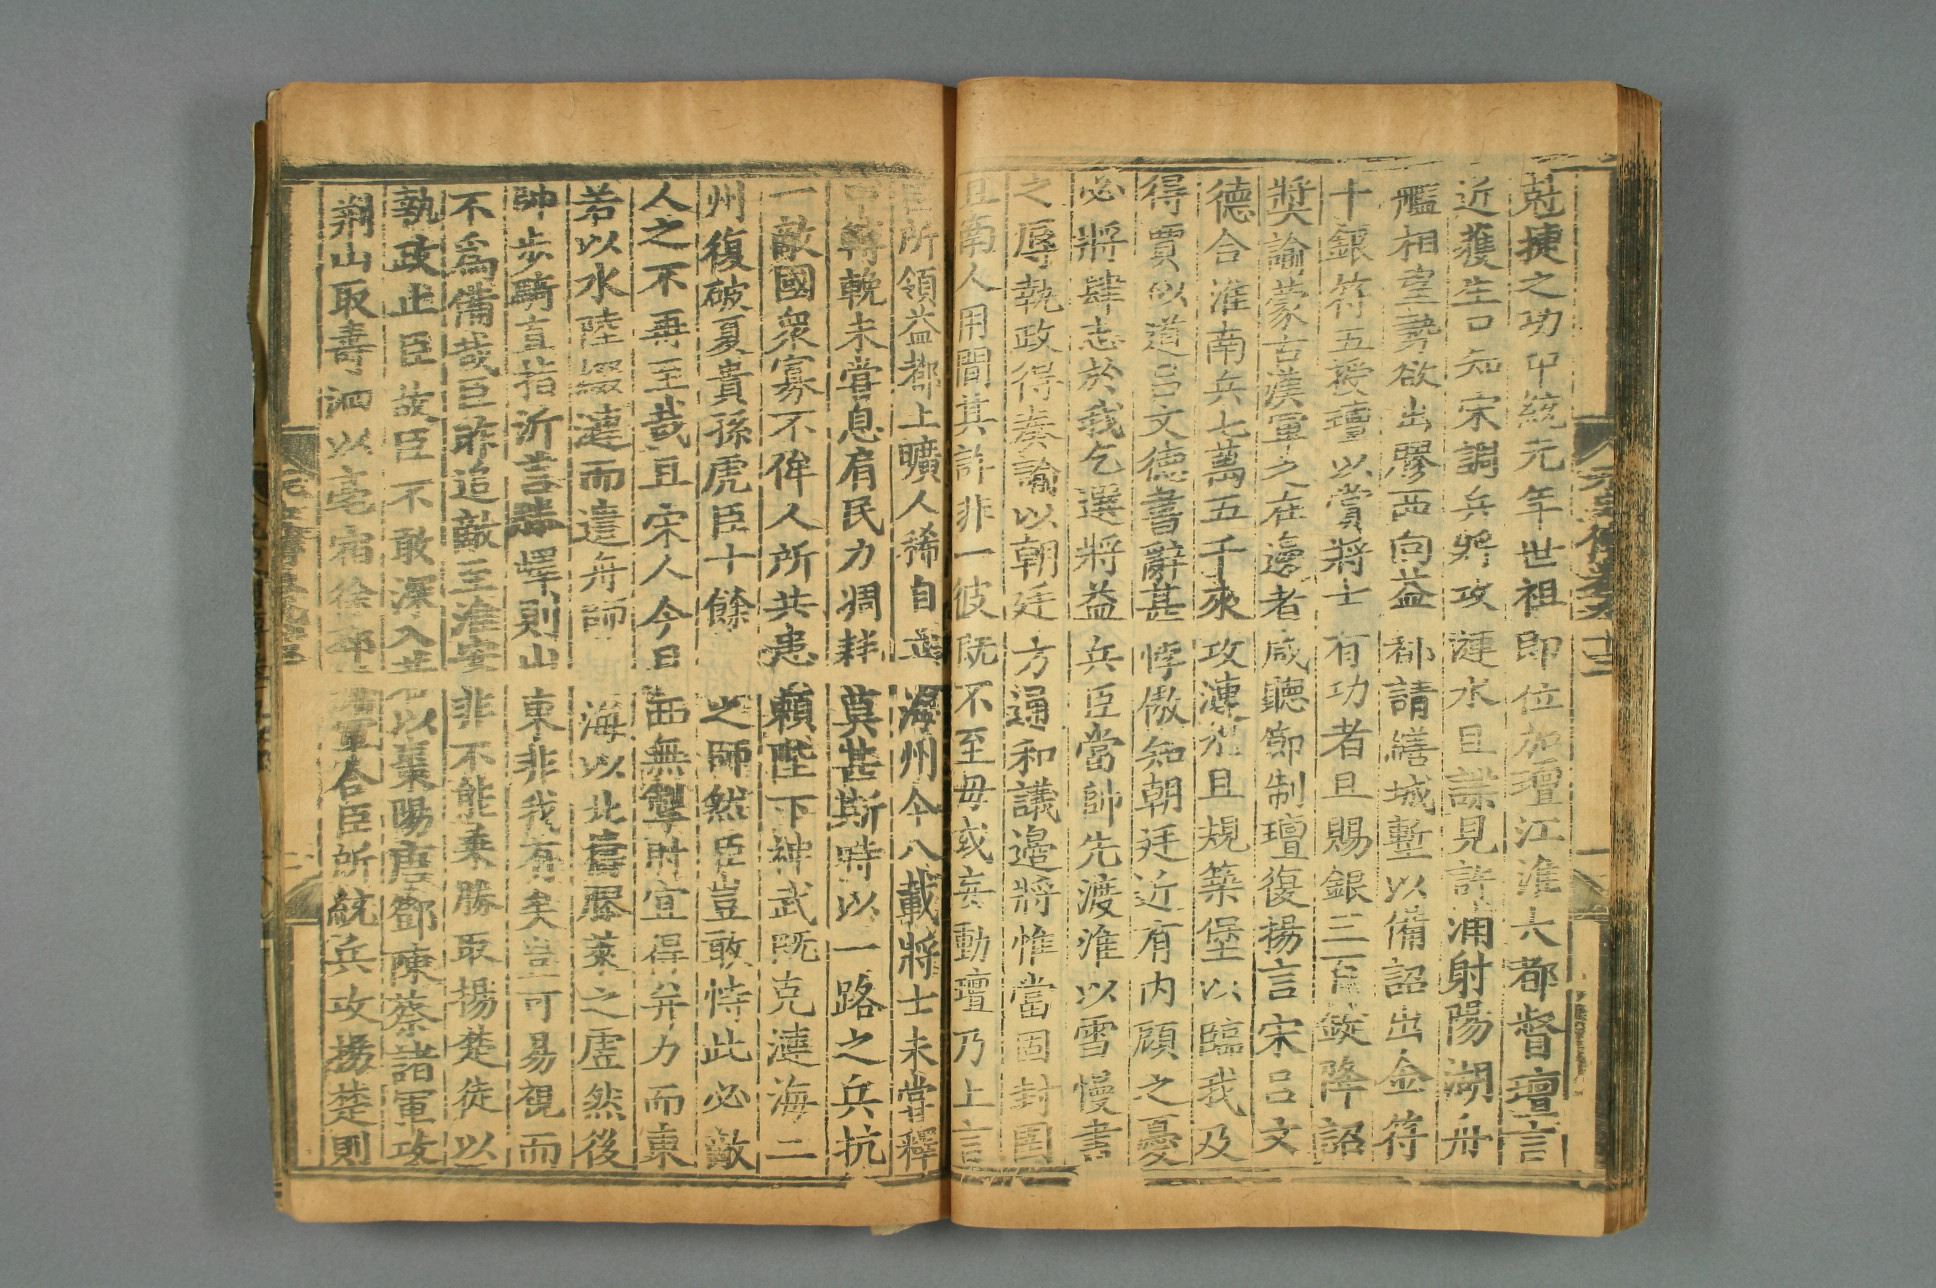 尅捷之功中統元年世祖即位加璮江淮大都督璮言
近獲生口知宋調兵將攻漣水且諜見許浦射陽湖舟
艦相望勢欲出膠西向益都請繕城塹以備詔出金符
十銀符五授璮以賞將士有功者且賜銀三百錠降詔
獎諭蒙古漢軍之在邊者咸聽節制璮復揚言宋呂文
德合淮南兵七萬五千來攻漣水且規築堡以臨我及
得賈似道呂文德書辭甚悖傲知朝廷近有内顧之憂
必將肆志於我乞選將益兵臣當帥先渡淮以雪慢書
之辱執政得奏諭以朝廷方通和議邊將惟當固封圉
且南人用間其詐非一彼既不至毋或妄動璮乃上言
臣所領益都土曠人稀自立海州今八載將士未嘗釋
甲轉輓未嘗息肩民力凋耗莫甚斯時以一路之兵抗
一敵國衆寡不侔人所共患賴陛下神武既克漣海二
州復破夏貴孫虎臣十餘萬之師然臣豈敢恃此必敵
人之不再至哉且宋人今日西無掣肘宜得并力而東
若以水陸綴漣而遣舟師遵海以北擣膠萊之虛然後
帥步騎直指沂莒滕嶧則山東非我有矣豈可易視而
不爲備哉臣昨追敵至淮安非不能乘勝取揚楚徒以
執政止臣故臣不敢深入若以棗陽唐鄧陳蔡諸軍攻
荆山取壽泗以亳宿徐邳諸軍合臣所統兵攻揚楚則